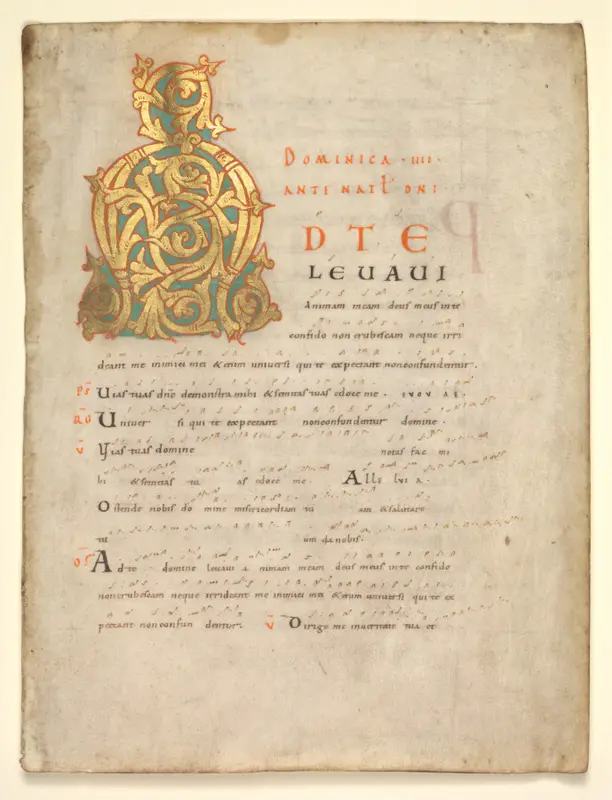 A
DOMINICA · IIII ·
ANTE NATL̄ DN̄I
D T E
LEUAUI
Animam meam deus meus inte
confido non erubescam neque irri
deant me inimici mei &enim uniuersi qui te expectant nonconfundentur.
Ps̄ Uias tuas dn̄e demonstra mihi &semitas tuas edoce me. EVOVAE.
Uniuer si qui te expectant nonconfundentur domine.
V̄ Vias tuas domine notas fac mi
hi &semitas tu as edoce me. Alle lui a.
Ostende nobis do mine misericordiam tu am &salutare
tu um da nobis.
Of̄ Adte domine leuaui a nimam meam deus meus inte confido
nonerubescam neque irrideant me inimici mei &enim uniuersi qui te ex
pectant nonconfun dentur. V̄ Dirige me inueritate tua et